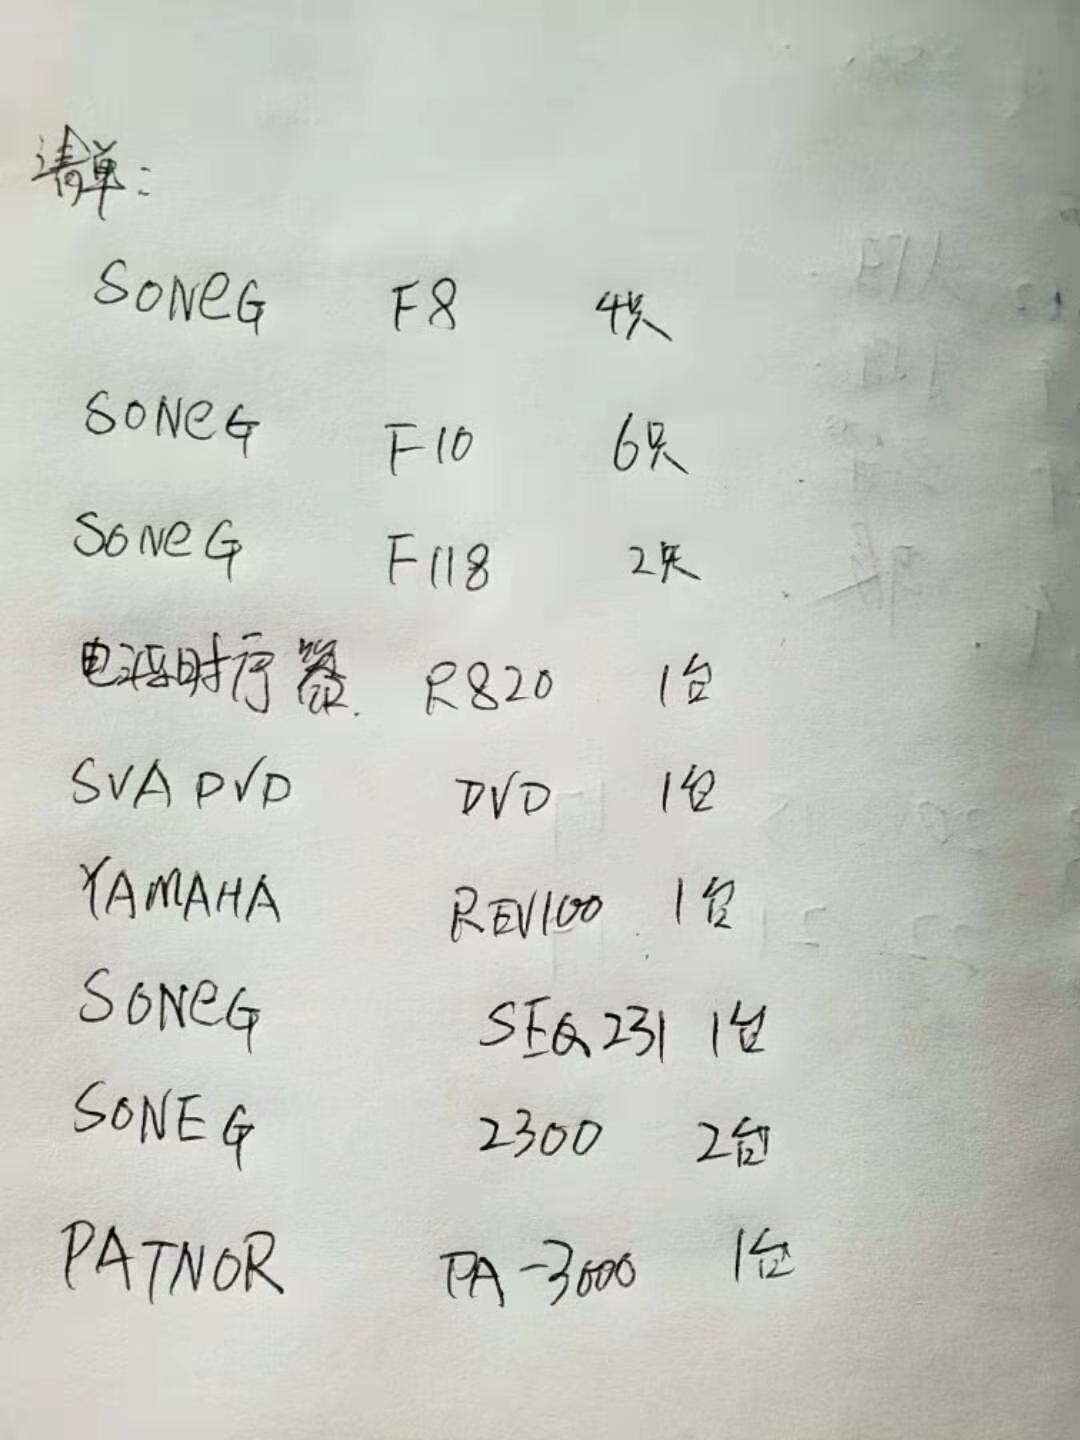 清单:
SONeG F8 4只
SONeG F10 6只
SONeG F118 2只
电源时序器. R820 1台
SVA DVD DVD 1台
YAMAHA REV100 1台
SONeG SEQ231 1台
SONEG 2300 2台
PATNOR PA-3000 1台